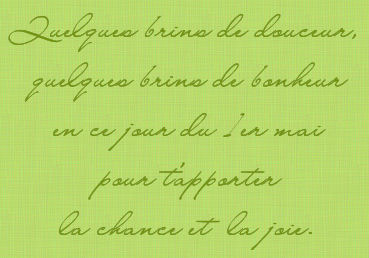 Quelques brins de douceur,
quelques brins de bonheur
en ce jour du 1er mai
pour t'apporter
la chance et la joie.